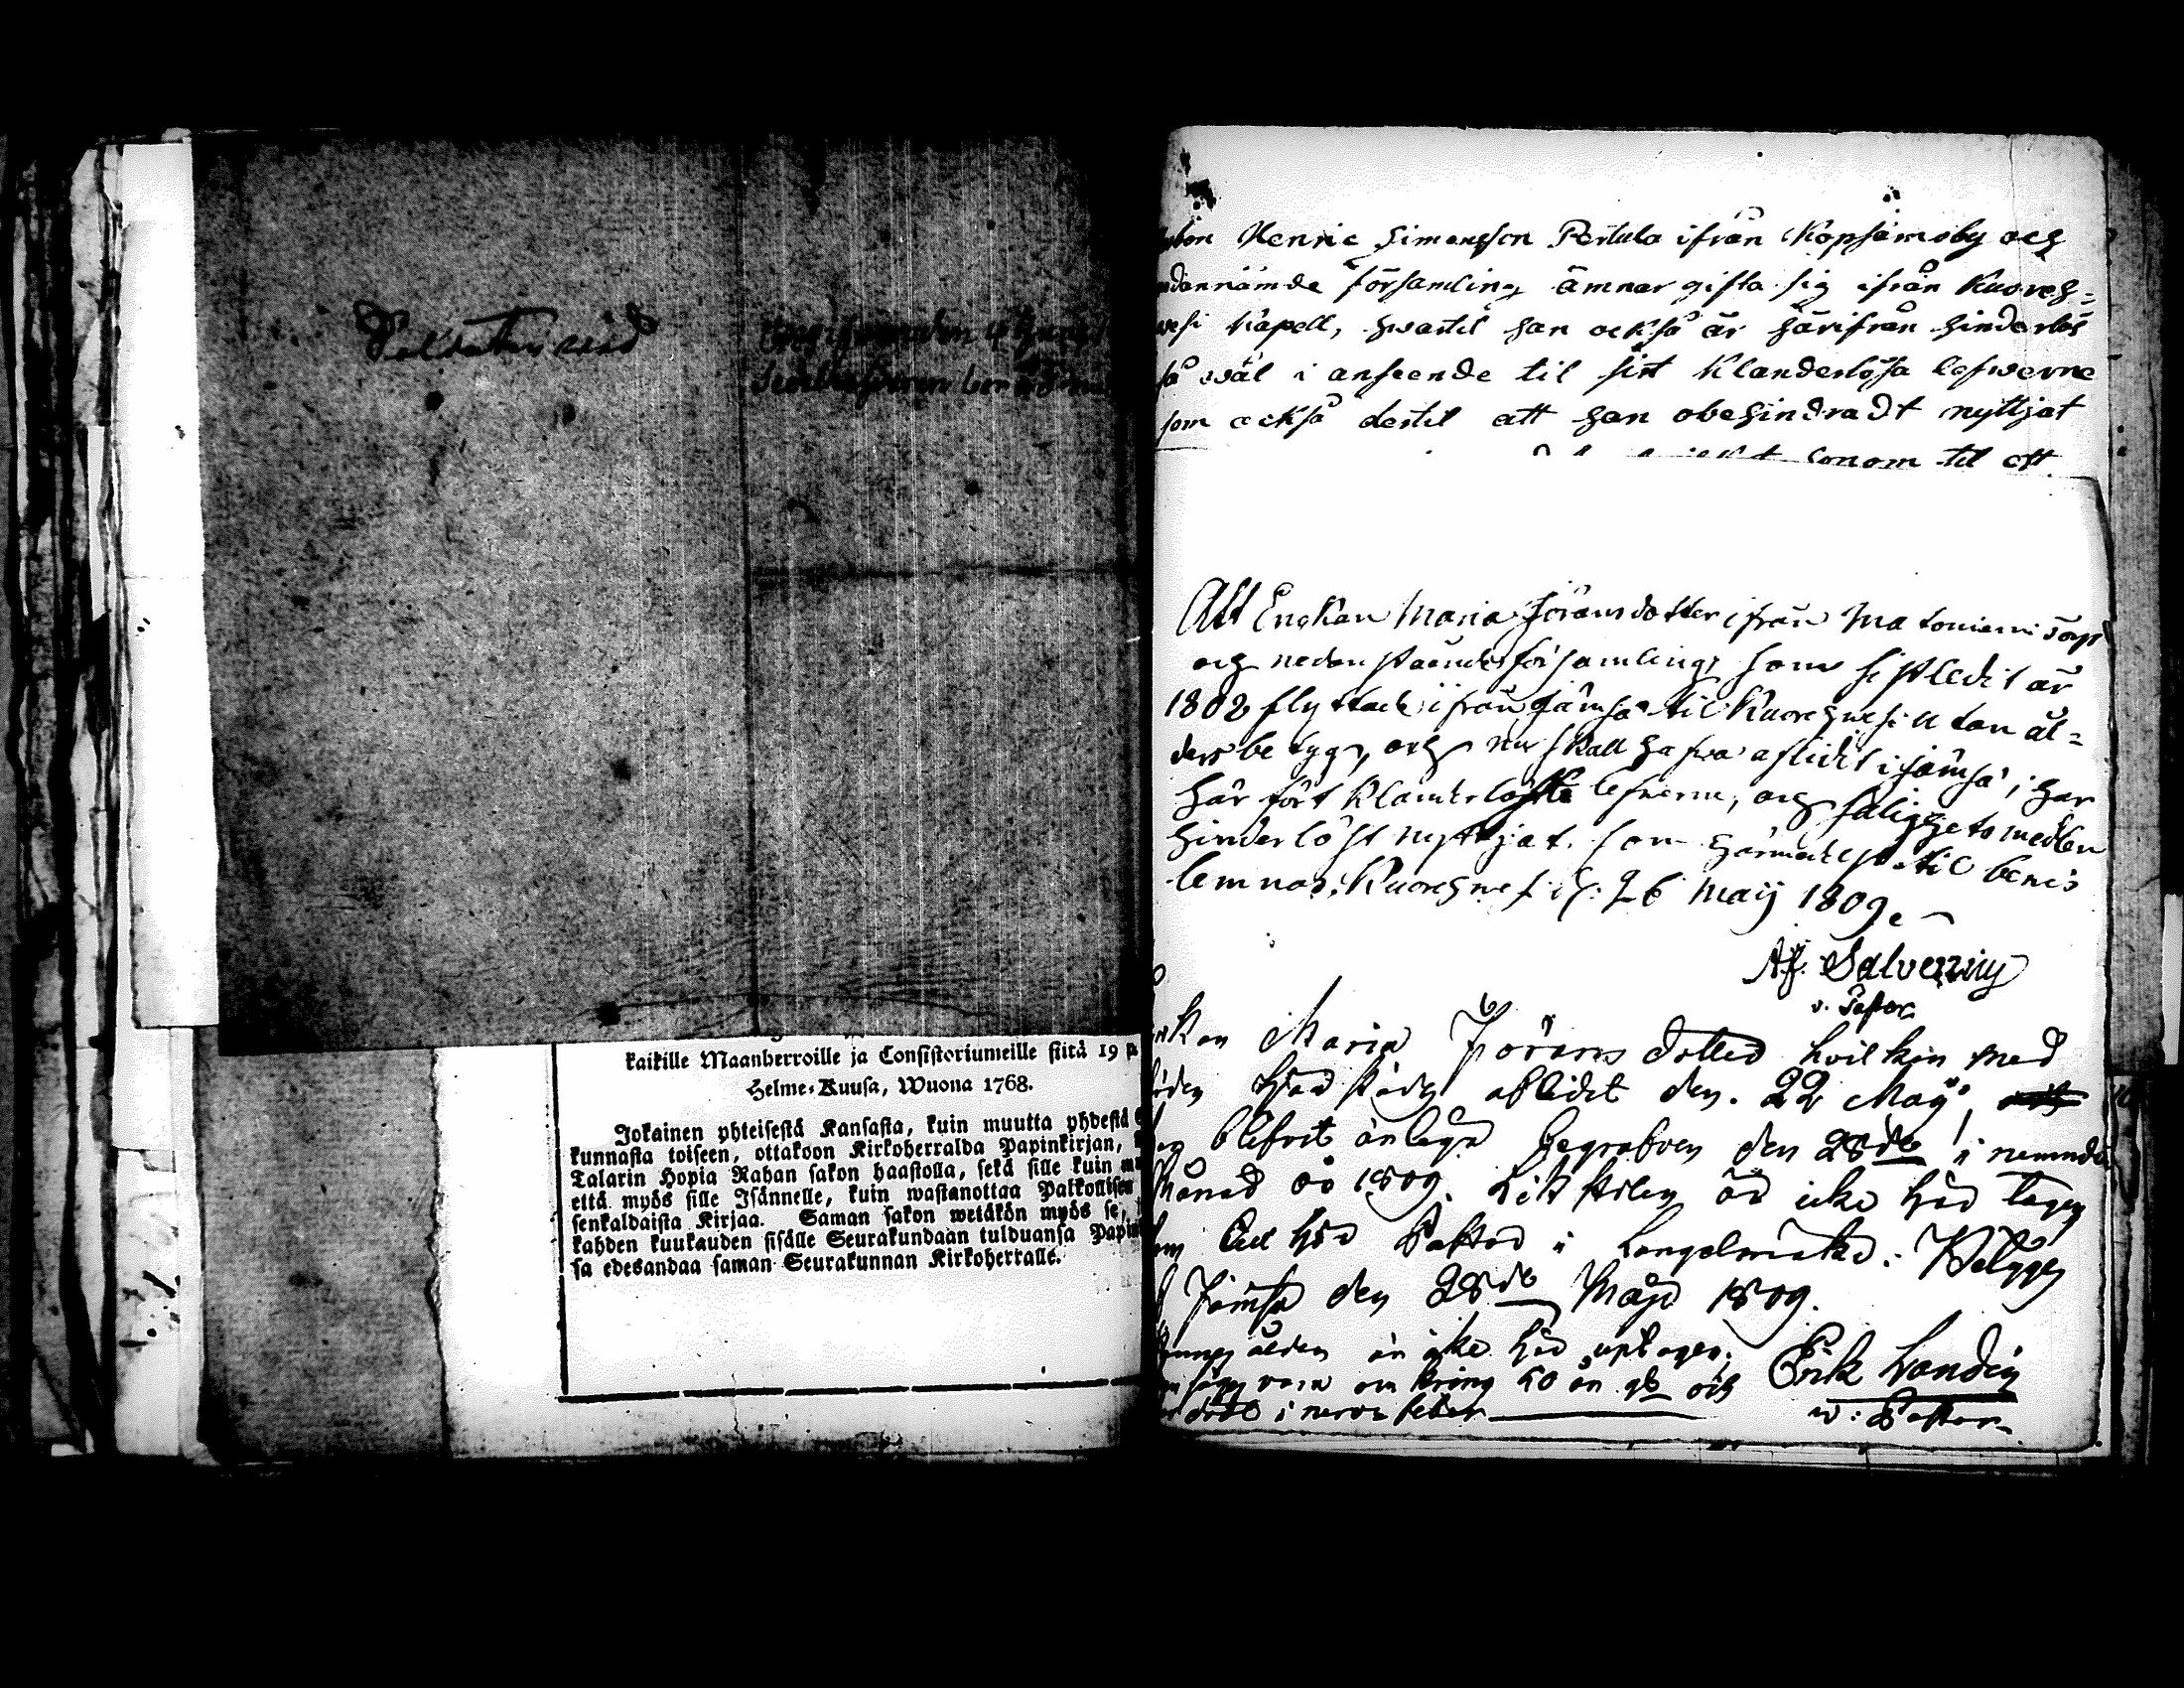 kaikille Maanherroille ja Consistoriumeille siitä 19 p
Helme-Kuusa, Wuona 1768.
Jokainen yhteisestä Kansasta, kuin muutta yhdestä
kunnasta toiseen, ottakoon Kirkoherralda Papinkirjan,
Talarin Hopia Rahan sakon haastolla, sekä sille kuin
että myös sille Isännelle, kuin wastanottaa Palkollisen
senkaldaista Kirjaa. Saman sakon wetäkön myös se,
kahden kuukauden sisälle Seurakundaan tulduansa Papin
sa edesandaa saman Seurakunnan Kirkoherralle.
Henric Simonsson Pertula ifrån Kopsamoby och
nedannämde församling ämnar gifta sig ifrån Kuoreh=
wesi Kapell, hwartil han också är härifrån hinderlös
så wäl i anseende til sitt Klanderlösa lefwerne
som också dertil att han obehindradt nyttjat
honom til att
Att Enckan Maria Jöransdotter ifrån Matoniemi Torp
och nedanstående församling, som sistledit år
1808 flyttade ifrån Jämsä til Kuorehwesi utan ål=
ders betyg, och nu skall hafwa aflidit i Jämsä, har
här fört Klanderlöst lefwerne, och saliggetsmedlen
hinderlöst nyttjat. som härmedelst til bewis
lemnas. Kuorehwesi d. 26 Maij 1809.
Salvenius
v. Pastor
Maria Jörans dotter hvilken med
döden här städes aflidit den 22 Maij,
blefvit anlagd begrafven den 28de i nemnde
Månad år 1809. Likstolen är icke här tagen
utan Hör Pastor i Längelmäki. Betygar
Jämsä den 28de Maji 1809.
åldern är icke här uptagen,
vara omkring 50 år gl och
död i nerv feber
Erik Londén
v: Pastor